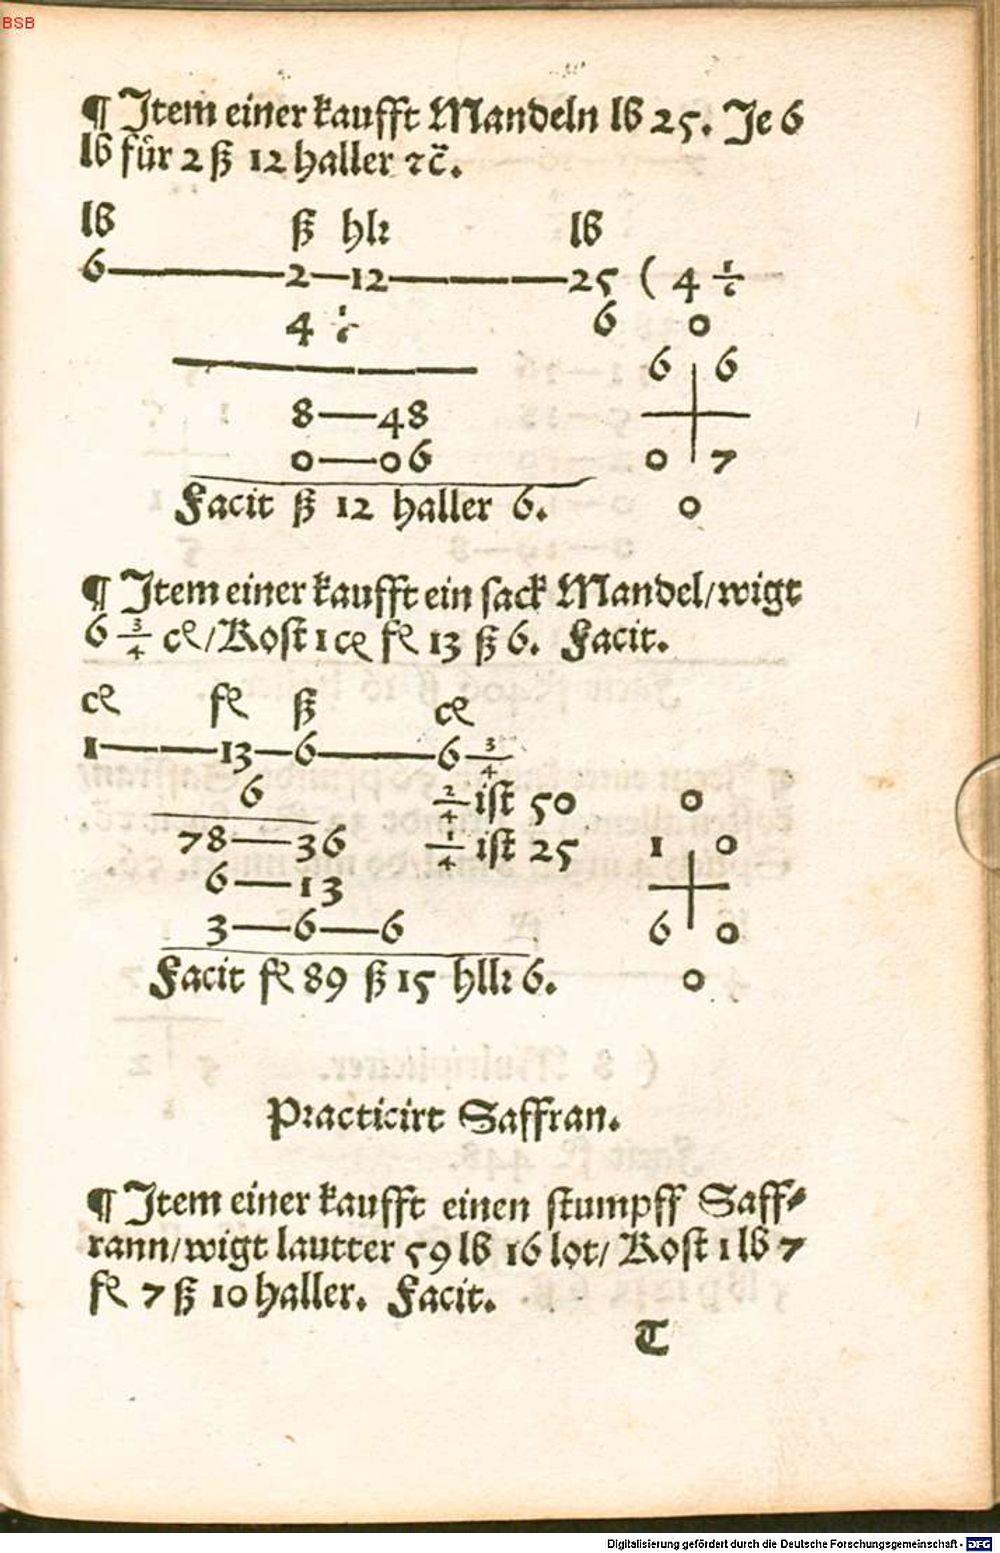 BSB
¶ Item einer kaufft Mandeln lb 25. Je 6
lb für 2 ß 12 haller ⁊c̄.
lb ß hlr lb
6 — 2 — 12 — 25 ( 4 1/6
4 1/6 6 0
6 6
8 — 48
0 — 06 0 7
Facit ß 12 haller 6. 0
¶ Item einer kaufft ein sack Mandel/wigt
6 3/4 cę/Kost 1 cę fl 13 ß 6. Facit.
cę fl ß cę
1 — 13 — 6 — 6 3/4
6 2/4 ist 50 0
78 — 36 1/4 ist 25 1 0
6 — 13
3 — 6 — 6 6 0
Facit fl 89 ß 15 hllr 6. 0
Practicirt Saffran.
¶ Item einer kaufft einen stumpff Saff-
rann/wigt lautter 59 lb 16 lot/ Kost 1 lb 7
fl 7 ß 10 haller. Facit.
T
Digitalisierung gefördert durch die Deutsche Forschungsgemeinschaft - DFG